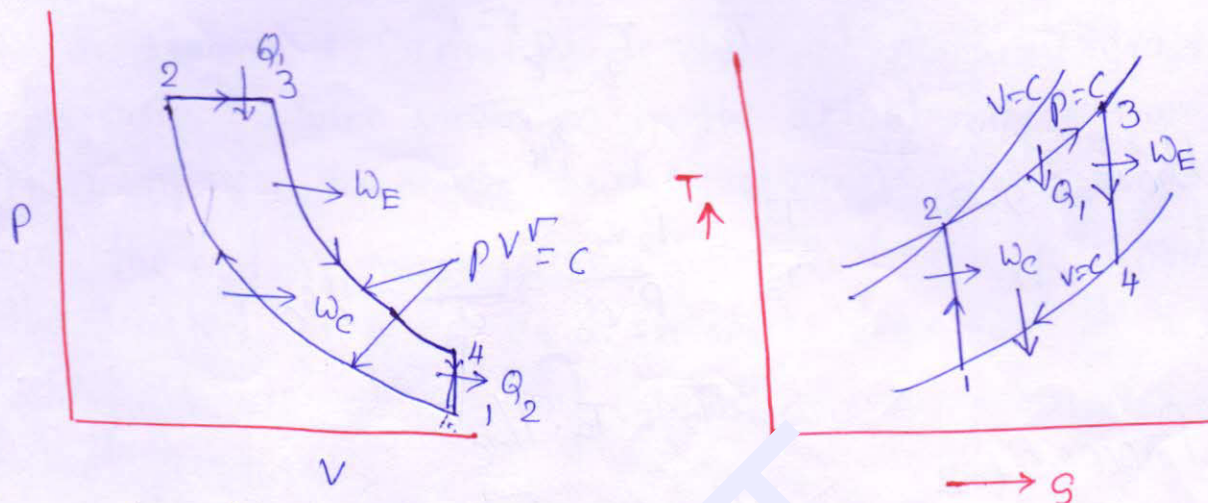 Q₁
2 3
W_E
P
PV^γ = C
W_C
4
Q₂
1
V
V=C
P=C
3
W_E
Q₁
T
2
W_C
V=C
4
1
S